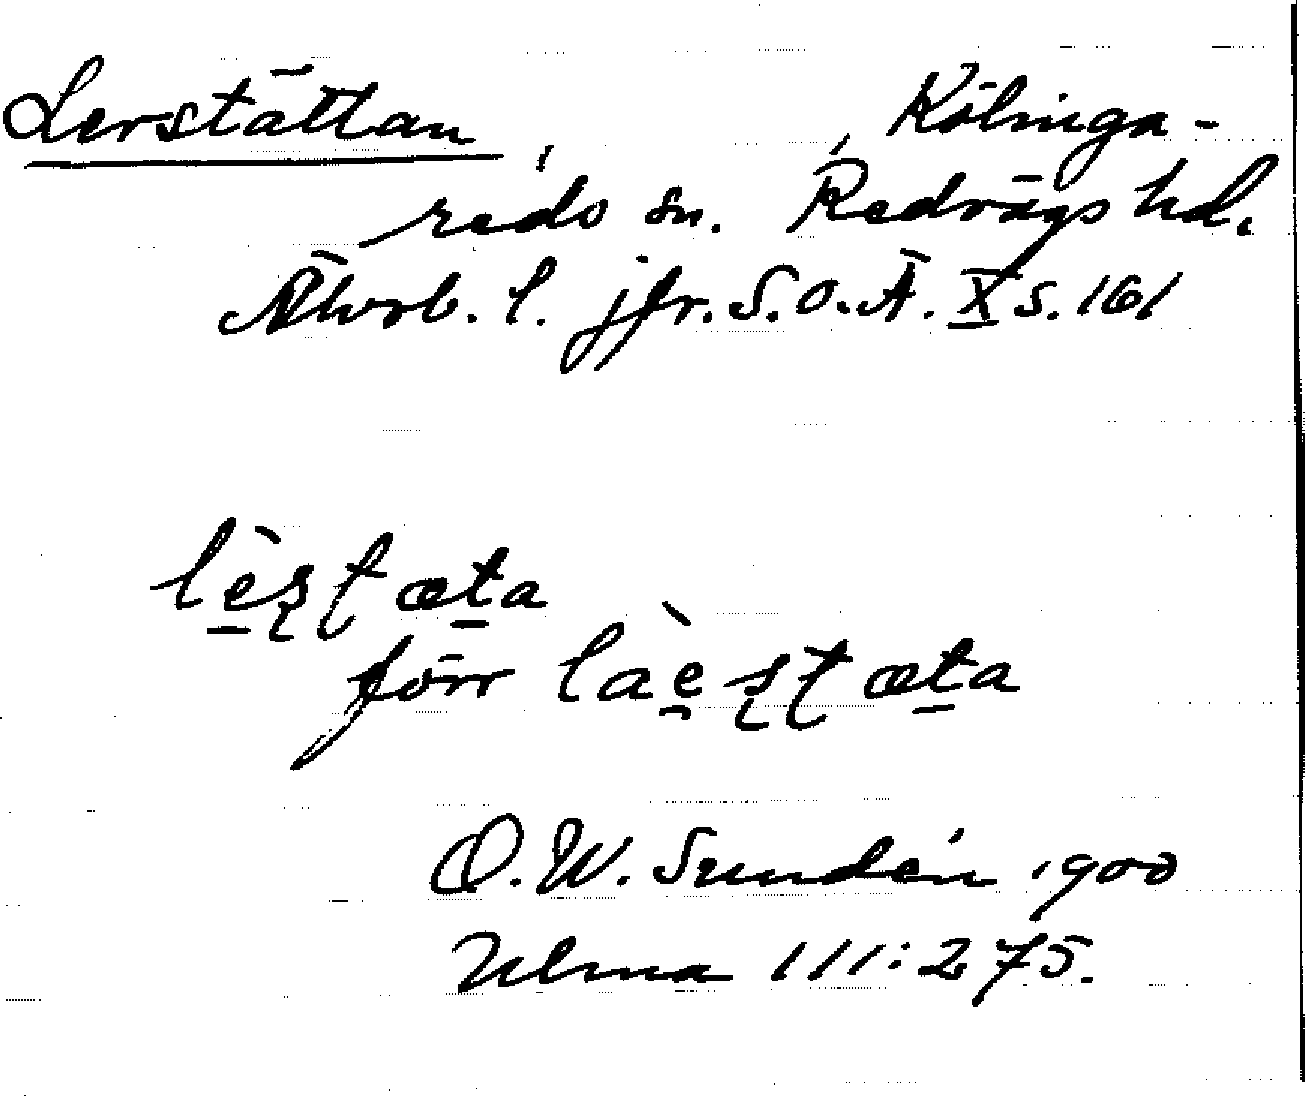 Lerstättan, Kölinga-
redo sn. Redvägs hd.
Älvsb. l. jfr. S.O.Ä. X s. 161
lèşt̨æta
förr laèşt̨æta
O.W. Sundén 1900
Ulma 111:275.